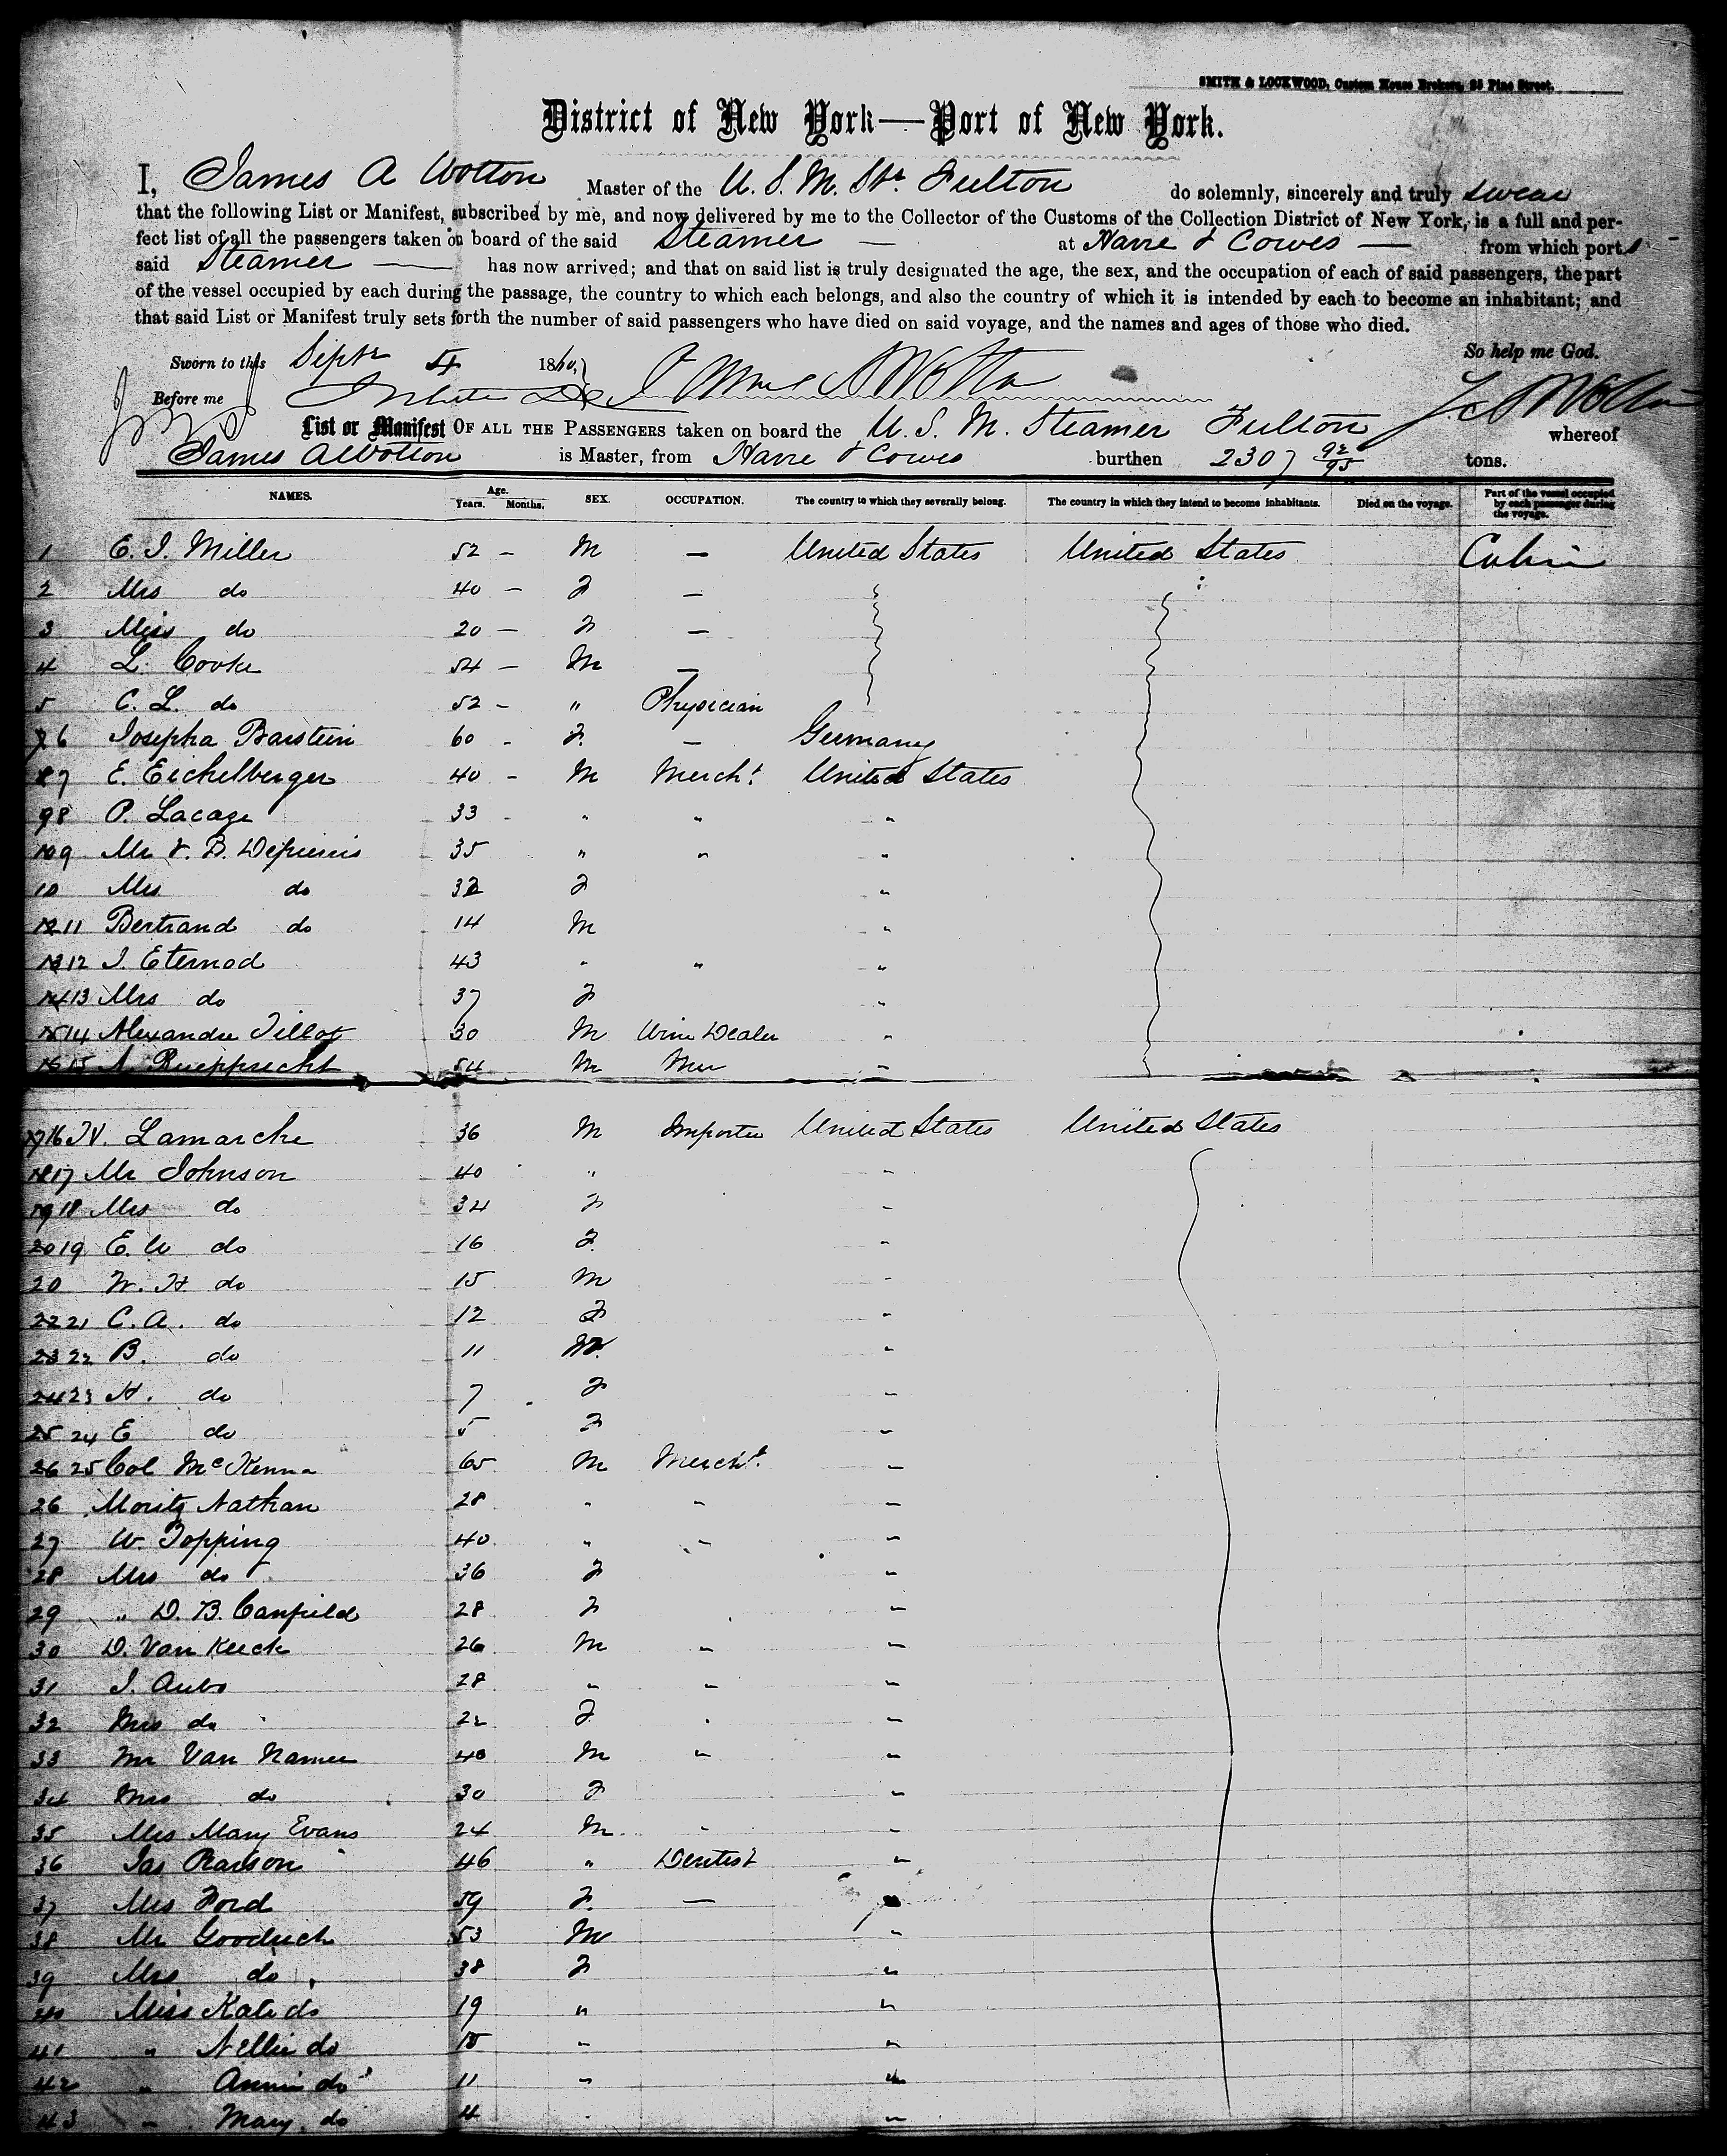 SMITH & LOCKWOOD, Custom House Brokers, 25 Pine Street.
District of New York—Port of New York.
I, James A Wotton Master of the U. S. M. Str. Fulton do solemnly, sincerely and truly swear
that the following List or Manifest, subscribed by me, and now delivered by me to the Collector of the Customs of the Collection District of New York, is a full and per-
fect list of all the passengers taken on board of the said Steamer — at Havre & Cowes — from which ports
said Steamer — has now arrived; and that on said list is truly designated the age, the sex, and the occupation of each of said passengers, the part
of the vessel occupied by each during the passage, the country to which each belongs, and also the country of which it is intended by each to become an inhabitant; and
that said List or Manifest truly sets forth the number of said passengers who have died on said voyage, and the names and ages of those who died.
Sworn to this Septr 4 1860, So help me God.
Before me
List or Manifest OF ALL THE PASSENGERS taken on board the U. S. M. Steamer Fulton whereof
James A Wotton is Master, from Havre & Cowes burthen 2307 92/95 tons.
NAMES. Age. Years. Months. SEX. OCCUPATION. The country to which they severally belong. The country in which they intend to become inhabitants. Died on the voyage. Part of the vessel occupied by each passenger during the voyage.
1 E. J. Miller 52 - M — United States United States Cabin
2 Mrs do 40 - F —
3 Miss do 20 - F —
4 L. Cooke 54 - M —
5 C. L. do 52 - " Physician
6 Josepha Barstein 60 - F. — Germany
7 E. Eichelberger 40 - M Mercht United States
8 P. Lacaze 33 - " " "
9 Mr V. B. 35 " " "
10 Mrs do 32 F "
11 Bertrand do 14 M "
12 J. Eternod 43 " " "
13 Mrs do 37 F "
14 Alexandre Tillot 30 M Wine Dealer "
15 A. Ruepprecht 54 M Mer "
16 Lamarche 36 M Importer United States United States
17 Mr Johnson 40 " "
18 Mrs do 34 F "
19 E. W do 16 F. "
20 W. H. do 15 M "
21 C. A. do 12 F "
22 B. do 11 "
23 H. do 7 F "
24 E do 5 F "
25 Col McKenna 65 M Mercht. "
26 Moritz Nathan 28 " " "
27 W. Topping 40 " " "
28 Mrs do 36 F "
29 " D. B. Canfield 28 F "
30 D. Van Keeck 26 M " "
31 J. Aubo 28 " " "
32 Mrs do 22 F. "
33 Mr Van Namee 40 M " "
34 Mrs do 30 F "
35 Mrs Mary Evans 24 M. " "
36 Jas Pearson 46 " Dentist "
37 Mrs Ford 59 F. — "
38 Mr Goodrich 53 M "
39 Mrs do 38 F "
40 Miss Kate do 19 " "
41 " Nellie do 15 " "
42 " Annie do 11 " "
43 " Mary do 4 "